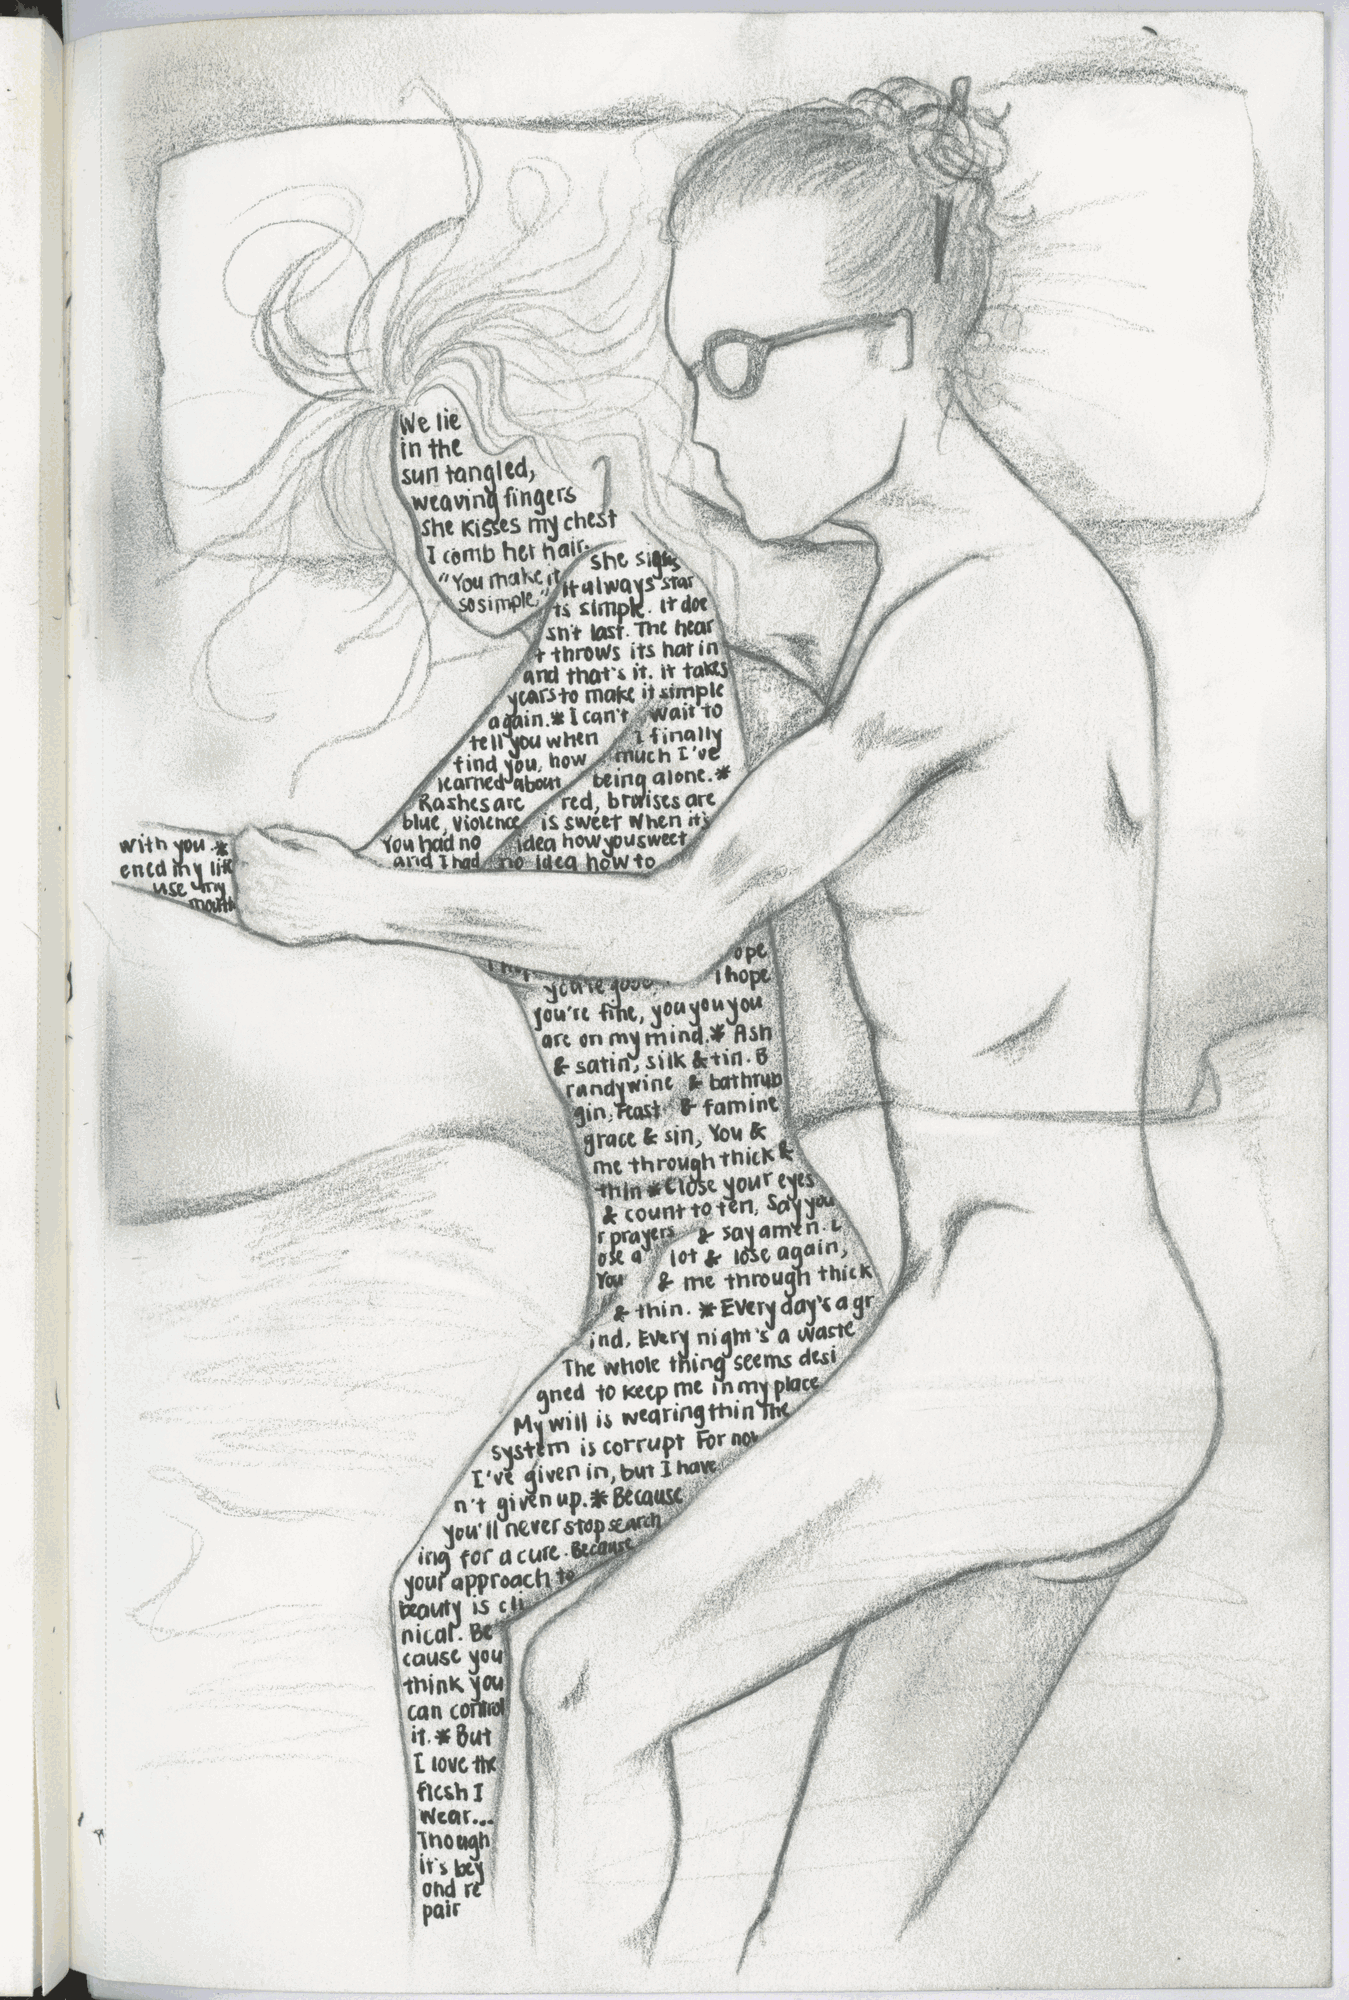 We lie
in the
sun tangled,
weaving fingers
she kisses my chest
I comb her hair.
"You make it
so simple,"
She sighs
it always star
ts simple. It doe
sn't last. The hear
t throws its hat in
and that's it. It takes
years to make it simple
again.* I can't wait to
tell you when I finally
find you, how much I've
learned about being alone.*
Rashes are red, bruises are
blue, violence is sweet when it's
with you.*
You had no idea how you sweet
ened my lik
and I had no idea how to
use my
mouth
ope
I hope
you're fine, you you you
are on my mind.* Ash
& satin, silk & tin. B
randywine & bathtub
gin, Feast & famine
grace & sin, You &
me through thick &
thin * Close your eyes
& count to ten, Say you
r prayers & say amen. L
ose a lot & lose again,
You & me through thick
& thin. * Every day's a gr
ind, Every night's a waste
The whole thing seems desi
gned to keep me in my place
My will is wearing thin The
system is corrupt For now
I've given in, but I have
n't given up.* Because
you'll never stop search
ing for a cure. Because
your approach to
beauty is cli
nical. Be
cause you
think you
can control
it.* But
I love the
flesh I
wear...
Though
it's bey
ond re
pair